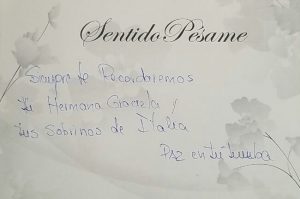 Sentido Pésame
Siempre te Recordaremos
tu Hermana Graciela y
tus Sobrinos de Italia
Paz en tu tumba